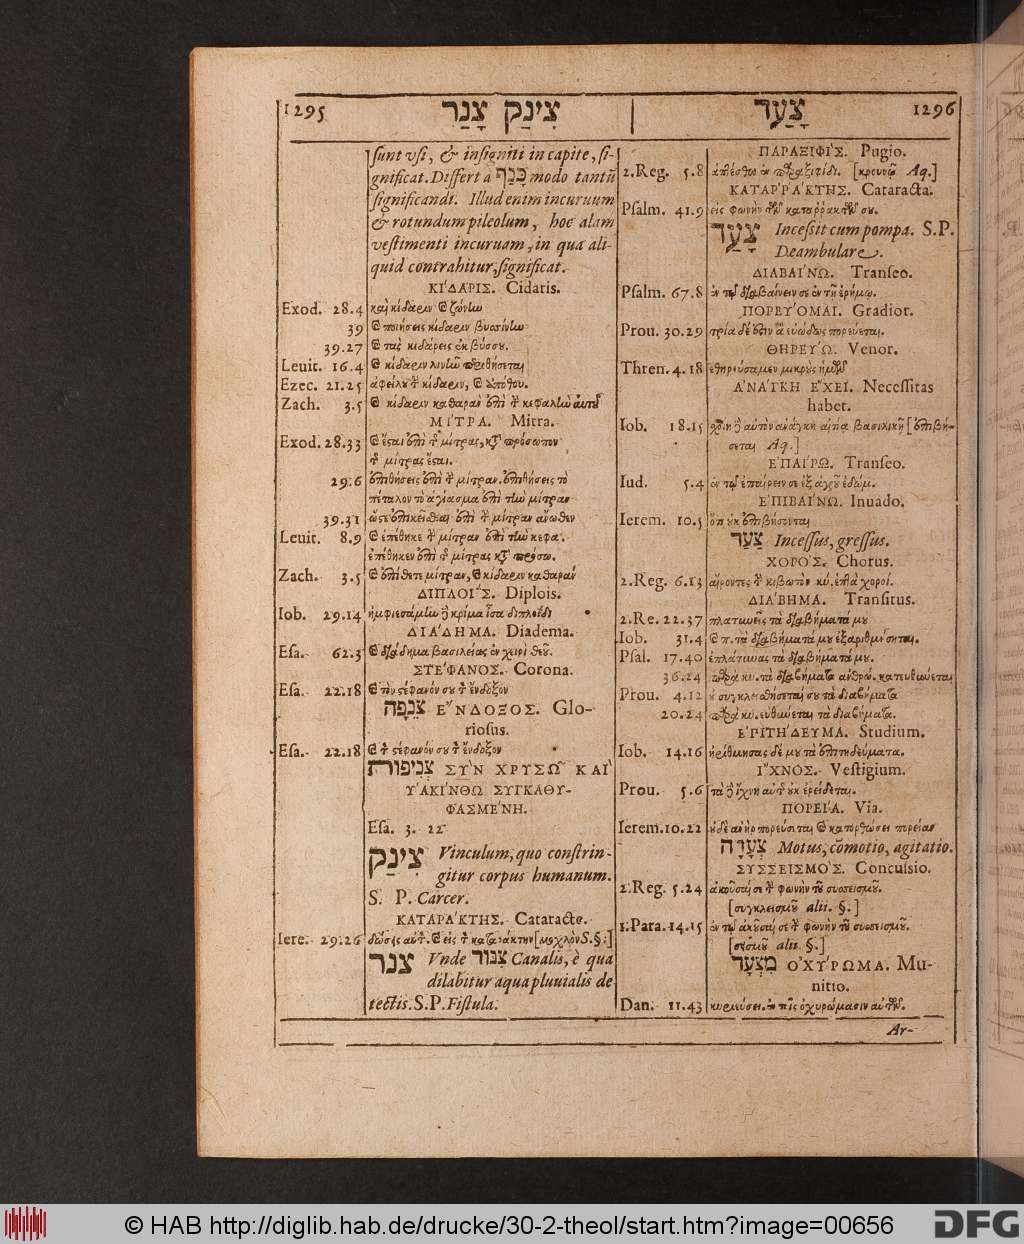 1295 צִינַק צָנַר צָעַד 1296
sunt vsi, & insigniti in capite, si-
gnificat. Differt à כָּנַף modo tantũ
significandi. Illud enim incuruum
& rotundum pileolum, hoc alam
vestimenti incuruam, in qua ali-
quid contrahitur, significat.
ΚΙ΄ΔΑΡΙΣ. Cidaris.
Exod. 28.4 καὶ κίδαριν & ζώνην
39 & ποιήσεις κίδαριν βυσσίνην
39.27 & τὰς κιδάρεις ἐκ βύσσου.
Leuit. 16.4 & κίδαριν λινῆν περιθήσεται
Ezec. 21.25 ἀφείλου τὴν κίδαριν, & ἐπέθου.
Zach. 3.5 & κίδαριν καθαρὰν ἐπὶ τὴν κεφαλὴν αὐτοῦ
ΜΙ΄ΤΡΑ. Mitra.
Exod. 28.33 & ἔσαι ἐπὶ τῆς μίτρας, κατὰ πρόσωπον
τῆς μίτρας ἔσαι.
29.6 ἐπιθήσεις ἐπὶ τὴν μίτραν. ἐπιθήσεις τὸ
πέταλον τὸ ἁγίασμα ἐπὶ τὴν μίτραν
39.31 ὥστε ἐπικεῖσθαι ἐπὶ τὴν μίτραν ἄνωθεν
Leuit. 8.9 & ἐπέθηκε τὴν μίτραν ἐπὶ τὴν κεφα.
ἐπέθηκεν ἐπὶ τὴν μίτρας κατὰ πρόσω.
Zach. 3.5 & ἐπίθετε μίτραν, & κίδαριν καθαράν
ΔΙΠΛΟΙ΄Σ. Diplois.
Iob. 29.14 ἠμφιεσάμην δὲ κρίμα ἶσα διπλοίδι
ΔΙΑ΄ΔΗΜΑ. Diadema.
Esa. 62.3 & διάδημα βασιλείας ἐν χειρὶ θεοῦ.
ΣΤΕ΄ΦΑΝΟΣ. Corona.
Esa. 22.18 & τὸν στέφανόν σου τὸν ἔνδοξον
צְנֵפָה Ε῎ΝΔΟΞΟΣ. Glo-
riosus.
Esa. 22.18 & τὸν στέφανόν σου τὸν ἔνδοξον
צְנִיפוֹת ΣΥ῍Ν ΧΡΥΣΩ͂ ΚΑΙ῍
Υ῾ΑΚΙ΄ΝΘΩ ΣΥΓΚΑΘΥ-
ΦΑΣΜΕ΄ΝΗ.
Esa. 3. 22
צִינַק Vinculum, quo constrin-
gitur corpus humanum.
S. P. Carcer.
ΚΑΤΑΡΑ΄ΚΤΗΣ. Cataracte.
Iere. 29.26 δώσεις αὐτὸν & εἰς τὸν καταράκτην [μοχλὸν S. §.]
צנר Vnde צִנּוֹר Canalis, è qua
dilabitur aqua pluuialis de
tectis. S.P. Fistula.
ΠΑΡΑΞΙΦΙ΄Σ. Pugio.
2.Reg. 5.8 ἁπτέσθω ἐν παραξιφίδι. [κρουνῷ Aq.]
ΚΑΤΑΡ῾ΡΑ΄ΚΤΗΣ. Cataracta.
Psalm. 41.9 εἰς φωνὴν τῶν καταῤῥακτῶν σου.
צָעַד Incessit cum pompa. S.P.
Deambulare.
ΔΙΑΒΑΙ΄ΝΩ. Transeo.
Psalm. 67.8 ἐν τῷ διαβαίνειν σε ἐν τῇ ἐρήμῳ.
ΠΟΡΕΥ΄ΟΜΑΙ. Gradior.
Prou. 30.29 τρία δέ ἐστιν ἃ εὐόδως πορεύεται.
ΘΗΡΕΥ΄Ω. Venor.
Thren. 4.18 ἐθηρεύσαμεν μικροὺς ἡμῶν
Α᾿ΝΑ΄ΓΚΗ Ε῎ΧΕΙ. Necessitas
habet.
Iob. 18.15 σχοίη δὲ αὐτὸν ἀνάγκη αἰτία βασιλικῇ [ἐπιβή-
σεται Aq.]
Ε᾿ΠΑΙ΄ΡΩ. Transeo.
Iud. 5.4 ἐν τῷ ἐπαίρειν σε ἐξ ἀγροῦ ἐδώμ.
Ε᾿ΠΙΒΑΙ΄ΝΩ. Inuado.
Ierem. 10.5 ὅτι οὐκ ἐπιβήσονται
צַעַד Incessus, gressus.
ΧΟΡΟ΄Σ. Chorus.
2.Reg. 6.13 αἴροντες τὴν κιβωτὸν κυ. ἑπτὰ χοροί.
ΔΙΑ΄ΒΗΜΑ. Transitus.
2.Re. 22.37 πλατωεῖς τὰ διαβήματά μου
Iob. 31.4 & π. τὰ διαβήματά μου ἐξαριθμήσηται.
Psal. 17.40 ἐπλάτωας τὰ διαβήματά μου.
36.24 παρὰ κυ. τὰ διαβήματα ἀνθρώ. κατευθύνεται
Prou. 4.12 οὐ συγκλεισθήσεται σου τὰ διαβήματα
20.24 παρὰ κυ. εὐθύνεται τὰ διαβήματα.
Ε᾿ΡΙΤΗ΄ΔΕΥΜΑ. Studium.
Iob. 14.16 ἠρίθμησας δέ μου τὰ ἐπιτηδεύματα.
Ι῎ΧΝΟΣ. Vestigium.
Prou. 5.6 τὰ δὲ ἴχνη αὐτῆς οὐκ ἐρείδεται.
ΠΟΡΕΙ΄Α. Via.
Ierem. 10.22 οὐδὲ ἀνὴρ πορεύσεται & κατορθώσει πορείαν
צְעָדָה Motus, cõmotio, agitatio.
ΣΥΣΣΕΙΣΜΟ΄Σ. Concussio.
2.Reg. 5.24 ἀκοῦσαί σε τὴν φωνὴν τοῦ συσσεισμοῦ.
[συγκλεισμοῦ alii. §.]
1.Para. 14.15 ἐν τῷ ἀκοῦσαί σε τὴν φωνὴν τοῦ συσσεισμοῦ.
[σεισμοῦ alii. §.]
מִצְעָד Ο᾿ΧΥ΄ΡΩΜΑ. Mu-
nitio.
Dan. 11.43 κυριεύσει. ἐν τοῖς ὀχυρώμασιν αὐτῶν.
Ar-
© HAB http://diglib.hab.de/drucke/30-2-theol/start.htm?image=00656
DFG